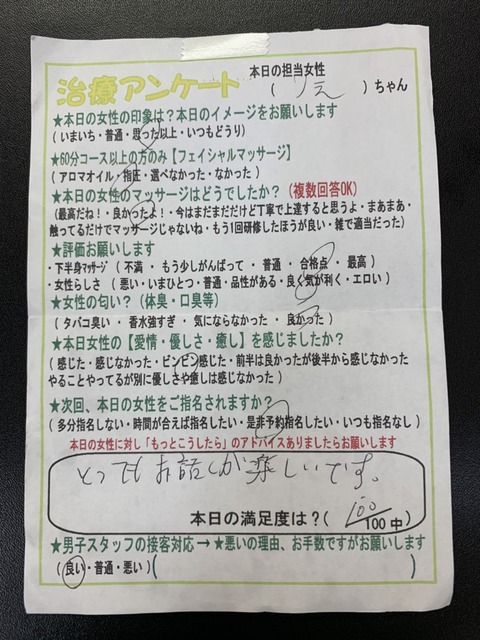 治療アンケート
本日の担当女性
( りえ )ちゃん
★本日の女性の印象は？本日のイメージをお願いします
(いまいち・普通・思った以上・いつもどうり)
★60分コース以上の方のみ【フェイシャルマッサージ】
( アロマオイル・指圧・選べなかった・なかった )
★本日の女性のマッサージはどうでしたか？(複数回答OK)
(最高だね！・良かったよ！・今はまだまだだけど丁寧で上達すると思うよ・まあまあ・
触ってるだけでマッサージじゃないね・もう1回研修したほうが良い・雑で適当だった)
★評価お願いします
・下半身マッサージ ( 不満 ・ もう少しがんばって ・ 普通 ・ 合格点 ・ 最高 )
・女性らしさ ( 悪い・いまひとつ・普通・品性がある・良く気が利く・エロい )
★女性の匂い？（体臭・口臭等）
( タバコ臭い ・ 香水強すぎ ・ 気にならなかった ・ 良かった )
★本日女性の【愛情・優しさ・癒し】を感じましたか？
( 感じた・感じなかった・ビンビン感じた・前半は良かったが後半から感じなかった
やることやってるが別に優しさや癒しは感じなかった )
★次回、本日の女性をご指名されますか？
( 多分指名しない・時間が合えば指名したい・是非予約指名したい・いつも指名なし )
本日の女性に対し「もっとこうしたら」のアドバイスありましたらお願いします
とってもお話しが楽しいです。
本日の満足度は？( 100 / 100 中 )
★男子スタッフの接客対応 → ★悪いの理由、お手数ですがお願いします
(良い・普通・悪い) ( )